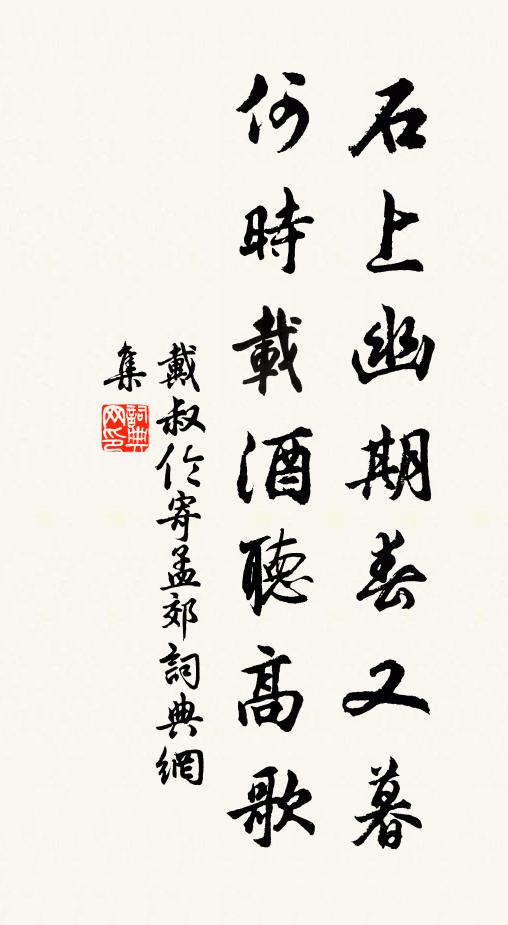 石上幽期春又暮
何時載酒聽高歌
戴叔伦寄孟郊詞典網
集
詞典
网印